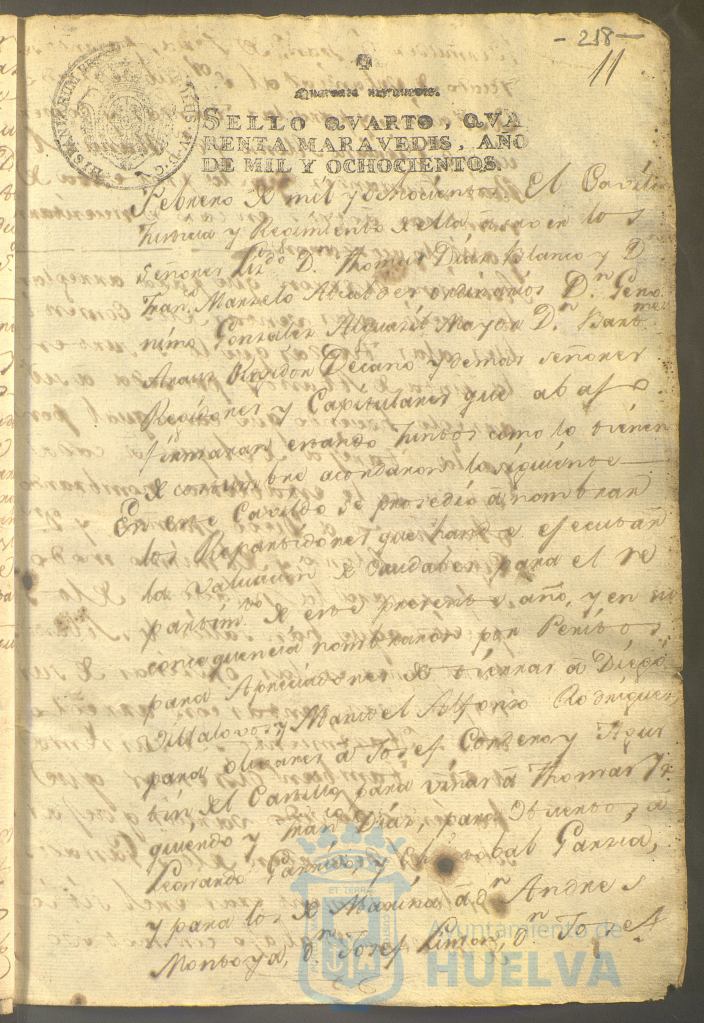 - 218 -
11
Quarenta maravedis.
SELLO QVARTO, QVA
RENTA MARAVEDIS, AÑO
DE MIL Y OCHOCIENTOS.
HISPANIARUM REX
Febrero de mil y ochocientos El Cavildo
Justicia y Regimiento de ella a saver los
Señores Lizdo Dn. Thomas Diaz Blanco y Dn.
Franco. Marzelo Alcaldes ordinarios Dn. Gero
nimo Gonzalez Alguazil Mayor Dn. Bartolmé
Arauz Rexidor Decano y demas señores
Regidores y Capitulares que abajo
firmaran estando juntos como lo tienen
de costumbre acordaron lo siguiente
En este Cavildo se prosedió á nombrar
los Repartidores que han de efecutar
la valuacion de caudales para el re
partimto. de este presente año, y en su
consequencia nombraron por Peritos
para Apreciadores de tierras á Diego
Villalovos y Manuel Alfonso Rodriguez
para olivares á Josef Cordero y Agus
tin del Castillo para viñas á Thomas Yz
quierdo y Juan Diaz, para
Fernando Garrido, y Christobal Garzia,
y para los de Marina, á dn. Andres
Montoya, dn. Josef Limon, dn. Josef
Ayuntamiento de
HUELVA